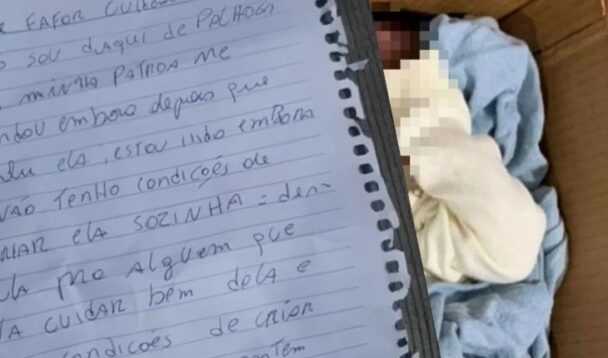 FAFOR CUIDA
SOU DAQUI DE PALHOÇA
MINHA PATROA ME
EMBORA depois que
ELA, ESTOU INDO EMBORA
NÃO TENHO CONDIÇÕES DE
CRIAR ELA SOZINHA
PRA ALGUEM QUE
CUIDAR bem DELA E
CONDICOES de CRIAR